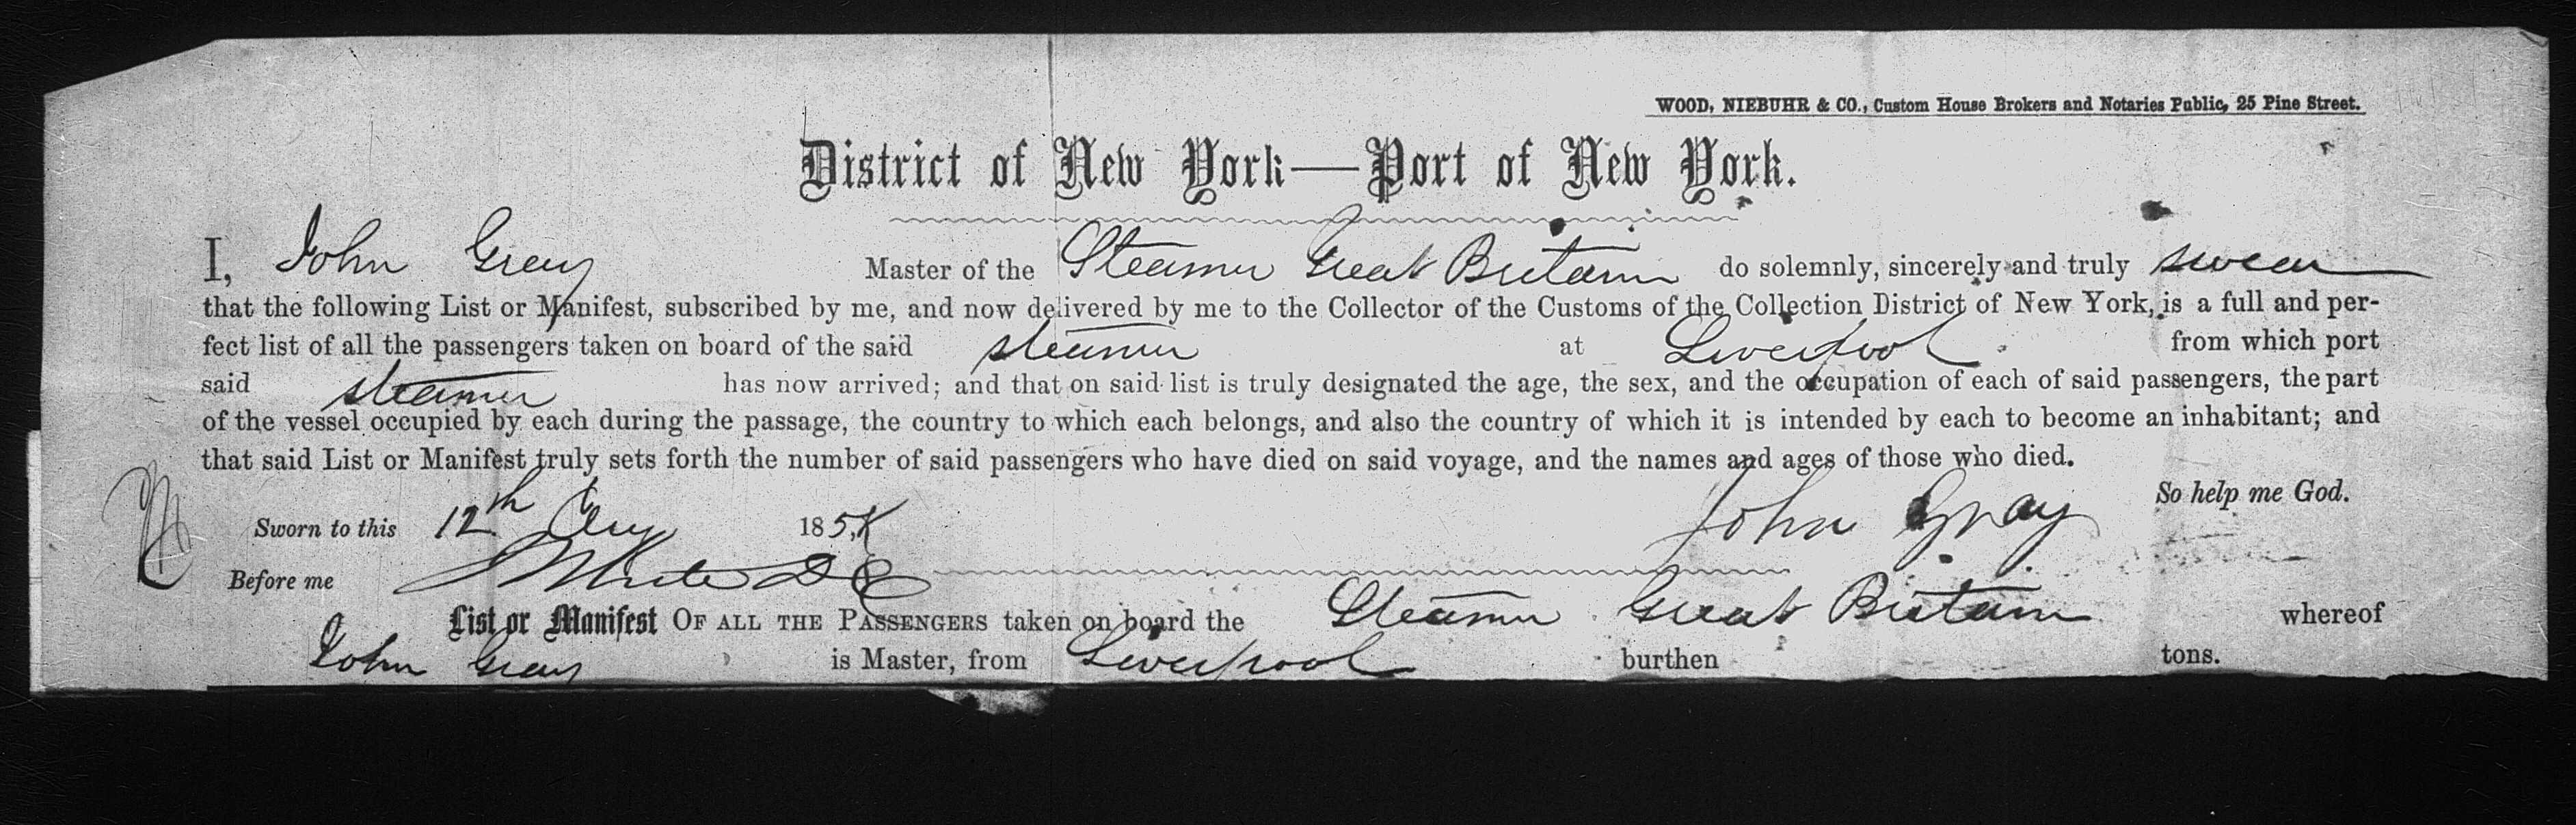 WOOD, NIEBUHR & CO., Custom House Brokers and Notaries Public, 25 Pine Street.
District of New York—Port of New York.
I, John Gray Master of the Steamer Great Britain do solemnly, sincerely and truly swear
that the following List or Manifest, subscribed by me, and now delivered by me to the Collector of the Customs of the Collection District of New York, is a full and per-
fect list of all the passengers taken on board of the said steamer at Liverpool from which port
said steamer has now arrived; and that on said list is truly designated the age, the sex, and the occupation of each of said passengers, the part
of the vessel occupied by each during the passage, the country to which each belongs, and also the country of which it is intended by each to become an inhabitant; and
that said List or Manifest truly sets forth the number of said passengers who have died on said voyage, and the names and ages of those who died.
So help me God.
Sworn to this 12th Aug 185 John Gray
Before me White D C
List or Manifest OF ALL THE PASSENGERS taken on board the Steamer Great Britain whereof
John Gray is Master, from Liverpool burthen tons.